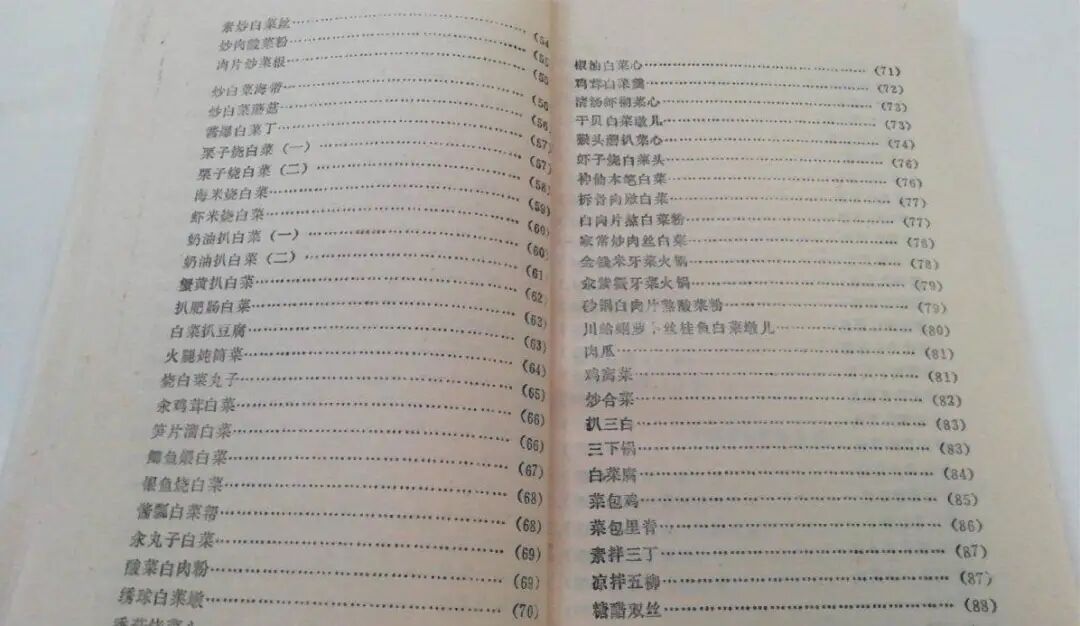 素炒白菜丝……(54
炒肉酸菜粉……(55
肉片炒菜根……(55
炒白菜海带……(56
炒白菜蘑菇……(56)
酱爆白菜丁……(57)
栗子烧白菜(一)……(57)
栗子烧白菜(二)……(58)
海米烧白菜……(59)
虾米烧白菜……(60)
奶油扒白菜(一)……(60)
奶油扒白菜(二)……(61
蟹黄扒白菜……(62)
扒肥肠白菜……(63)
白菜扒豆腐……(63)
火腿炖筒菜……(64)
烧白菜丸子……(65)
汆鸡茸白菜……(66)
笋片溜白菜……(66)
鲫鱼煨白菜……(67)
银鱼烧白菜……(68)
酱瓢白菜帮……(68)
汆丸子白菜……(69)
酸菜白肉粉……(69)
绣球白菜墩……(70)
椒油白菜心……(71)
鸡茸白菜羹……(72)
清汤虾糊菜心……(73)
干贝白菜墩儿……(73)
猴头蘑扒菜心……(74)
虾子烧白菜头……(76)
神仙本笔白菜……(76)
拆骨肉燉白菜……(77)
白肉片熬白菜粉……(77)
家常炒肉丝白菜……(78)
金钱米牙菜火锅……(78)
汆紫蟹牙菜火锅……(79)
砂锅白肉片熬酸菜粉……(79)
川蛤蜊萝卜丝桂鱼白菜墩儿……(80)
肉瓜……(81)
鸡离菜……(81)
炒合菜……(82)
扒三白……(83)
三下锅……(83)
白菜腐……(84)
菜包鸡……(85)
菜包里脊……(86)
素拌三丁……(87)
凉拌五柳……(87)
糖醋双丝……(88)